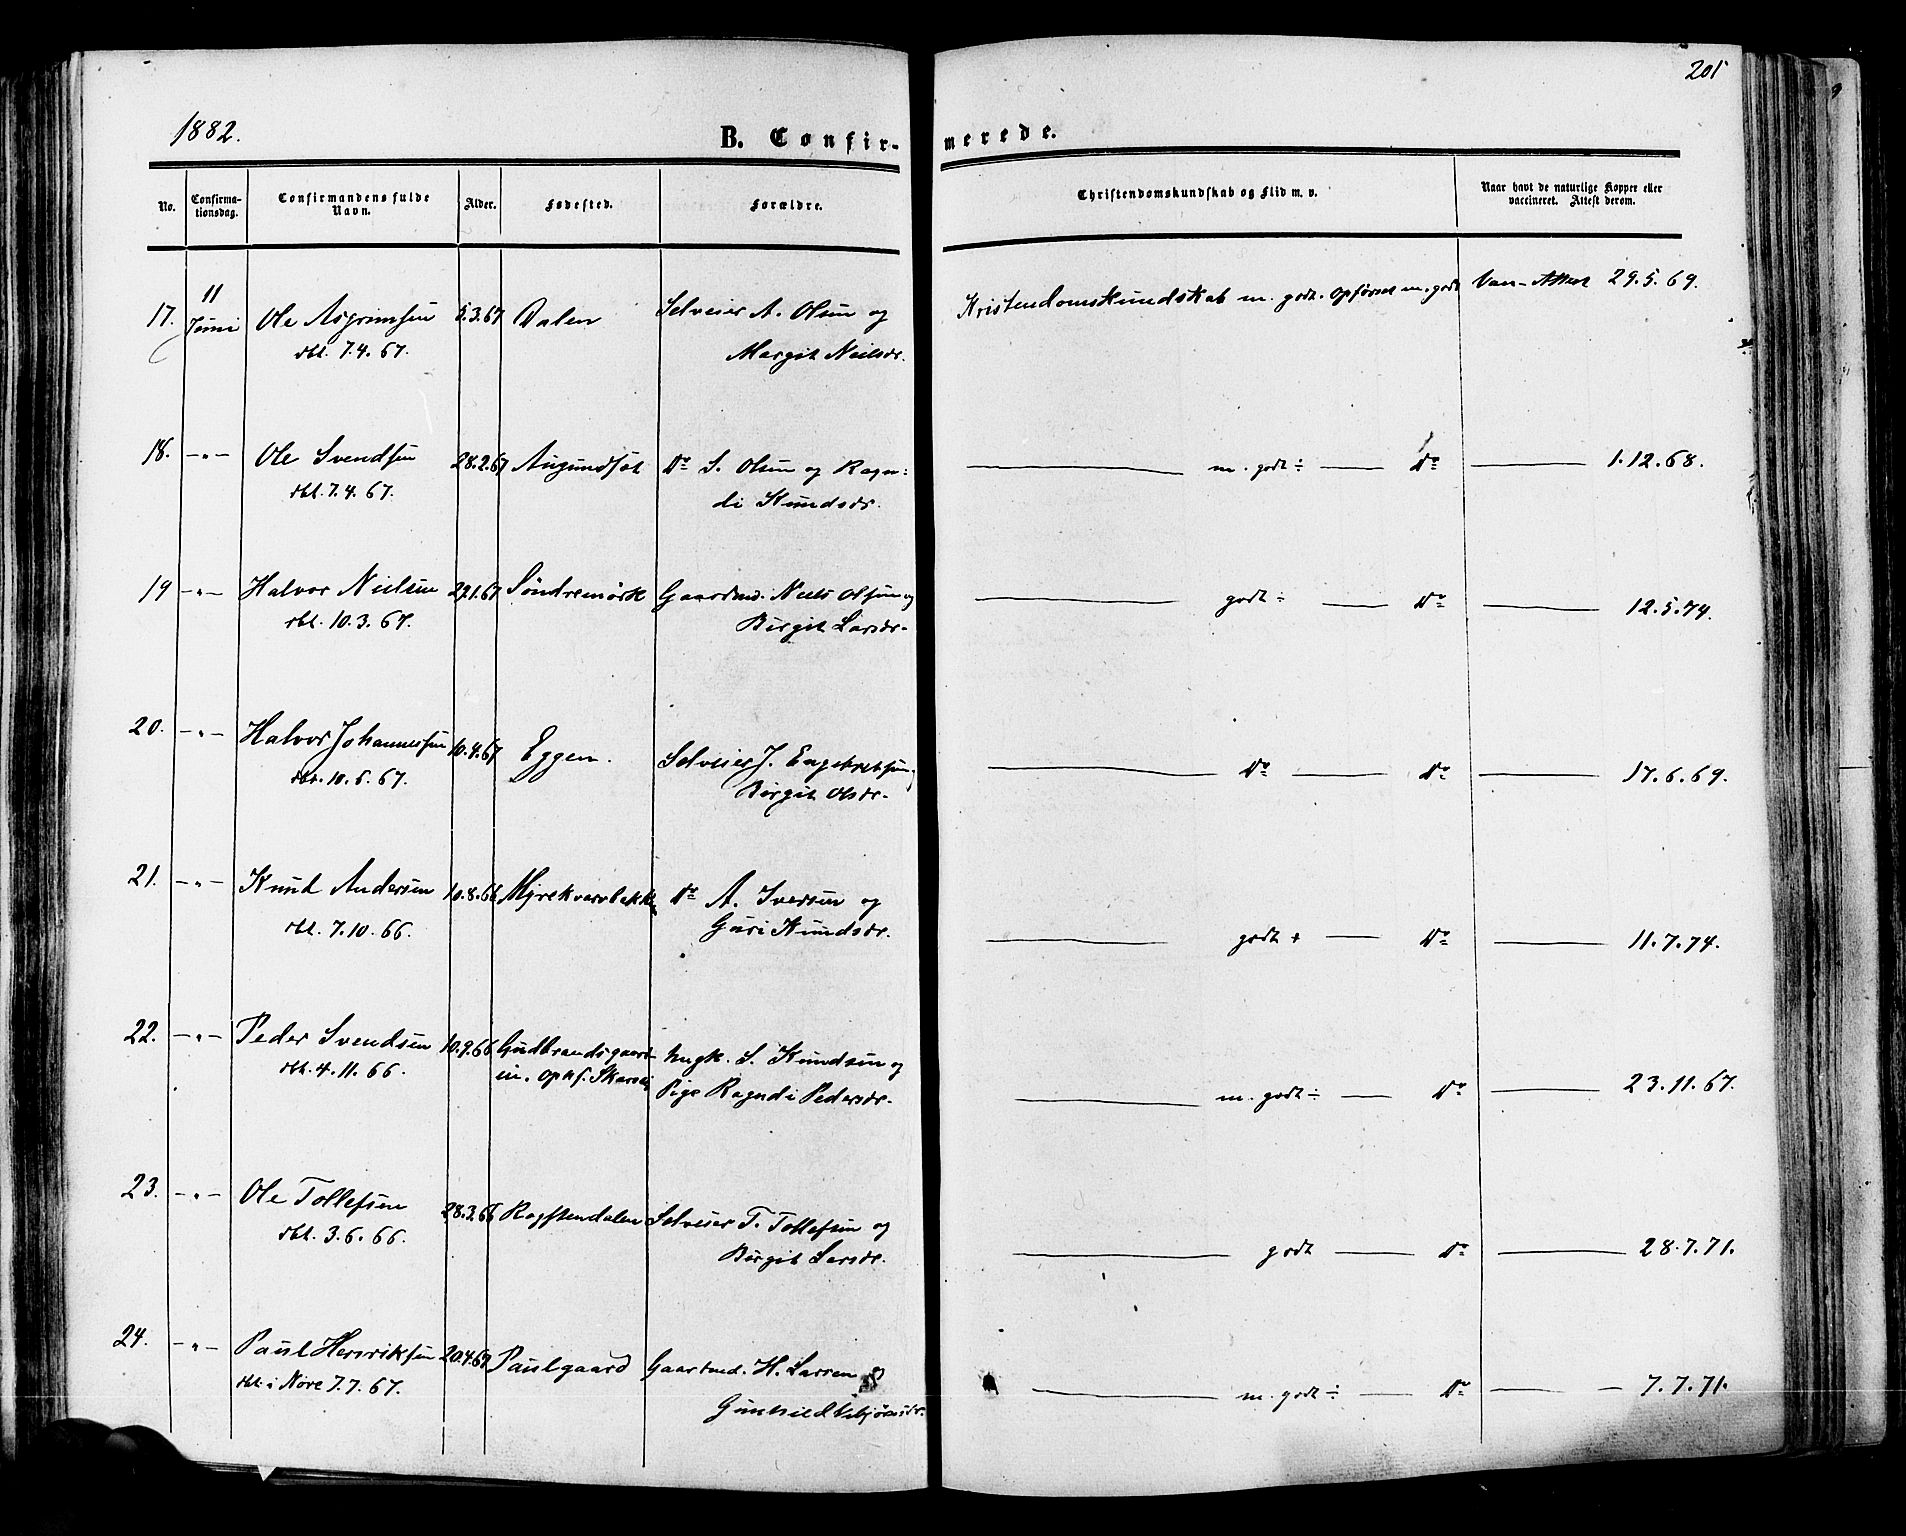 201
1882.
B. Confirmerede.
No. Confirmationsdag. Confirmandens fulde Navn. Alder. Fødested. Forældre. Christendomskundskab og Flid m. v. Naar havt de naturlige Kopper eller vaccineret. Attest derom.
17. 11 Juni Ole Asgrimsen 5.3.67 Dalen Selveier A. Olsen og Kristendomskundskab m. godt. Opførsel m. godt Vac-Attest 29.5.69.
dbt. 7.4.67. Margit Nielsdr.
18. -"- Ole Svendsen 28.2.67 Augundsøt Do S. Olsen og Ragn- m. godt ÷ Do 1.12.68.
dbt. 7.4.67. di Knudsdr.
19 -"- Halvor Nielsen 27.1.67 Søndremørk Gaardmd. Niels Olsen og godt ÷ Do 12.5.74.
dbt. 10.3.67. Birgit Larsdr.
20. -"- Halvor Johannessen 10.4.67 Eggen. Selveier J. Engebretsen Do Do 17.6.69.
dbt. 10.6.67. Birgit Olsdr.
21. -"- Knud Andersen 10.8.66 Myrekvervbakken Do A. Iversen og godt + Do 11.7.74.
dbt. 7.10.66. Guri Knudsdr.
22. -"- Peder Svendsen 10.9.66 Gudbrandsgaard- Ungk. S. Knudsen og m. godt ÷ Do 23.11.67.
dbt. 4.11.66. ei. Oph. Pige Ragndi Pedersdr.
23. -"- Ole Tollefsen 28.3.66 Rogstendalen Selveier T. Tollefsen og godt Do 28.7.71.
dbt. 3.6.66. Birgit Larsdr.
24. -"- Paul Henriksen 20.4.67 Paulgaard Gaardmd. H. Larsen og m. godt ÷ Do 7.7.71.
dbt. i Nore 7.7.67. Gunhild